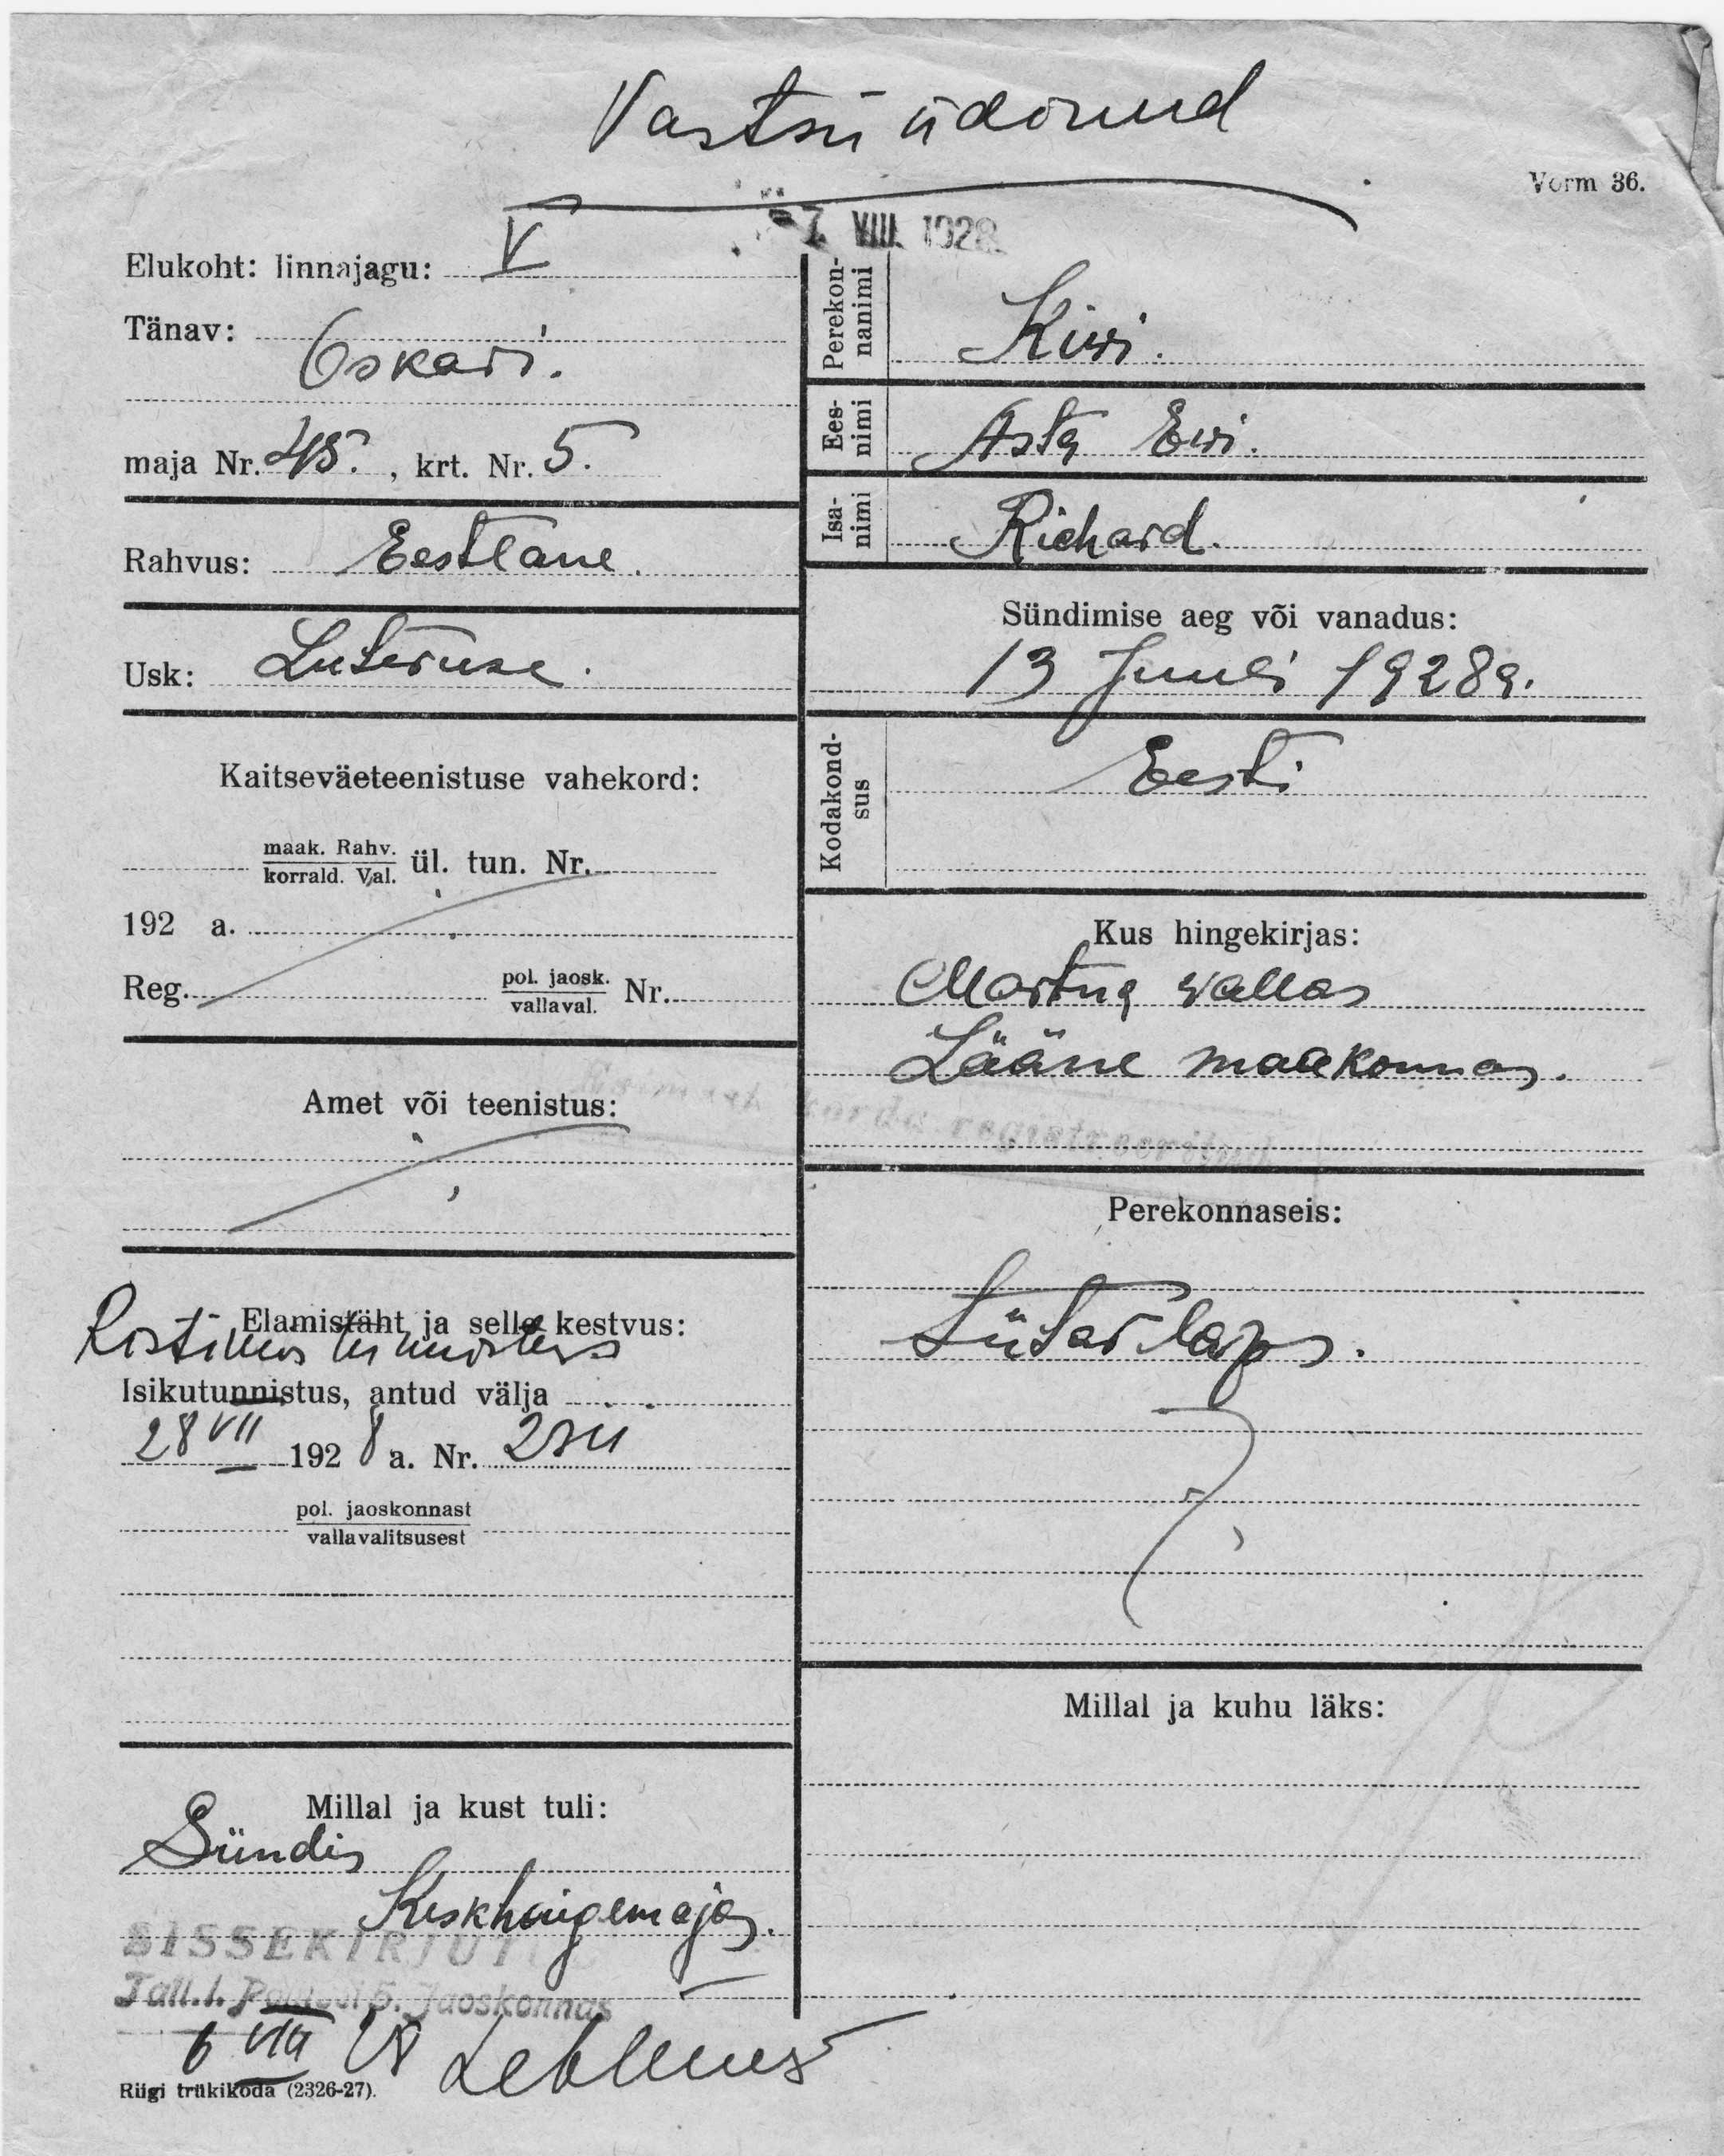 Vastsündinud
Vorm 36.
7. VIII. 1928
Elukoht: linnajagu: V
Tänav:
Oskari.
maja Nr. 45., krt. Nr. 5.
Rahvus: Eestlane.
Usk: Luteruse.
Kaitseväeteenistuse vahekord:
maak. Rahv.
korrald. Val. ül. tun. Nr.
192 a.
Reg. pol. jaosk.
vallaval. Nr.
Amet või teenistus:
Elamistäht ja selle kestvus:
Ristimis tunnistus
Isikutunnistus, antud välja
28 VII 1928 a. Nr.
pol. jaoskonnast
vallavalitsusest
Millal ja kust tuli:
Sündis
Keskhaigemajas.
SISSEKIRJUT
Tall.l. Politsei 5. Jaoskonnas
6 VIII 28
Riigi trükikoda (2326-27).
Perekon-
nanimi
Kiwi.
Ees-
nimi
Asta Ewi.
Isa-
nimi
Richard.
Sündimise aeg või vanadus:
13 Juuli 1928a.
Kodakond-
sus
Eesti
Kus hingekirjas:
Martna wallas
Lääne maakonnas.
korda registreeritud
Perekonnaseis:
Tütarlaps.
Millal ja kuhu läks: